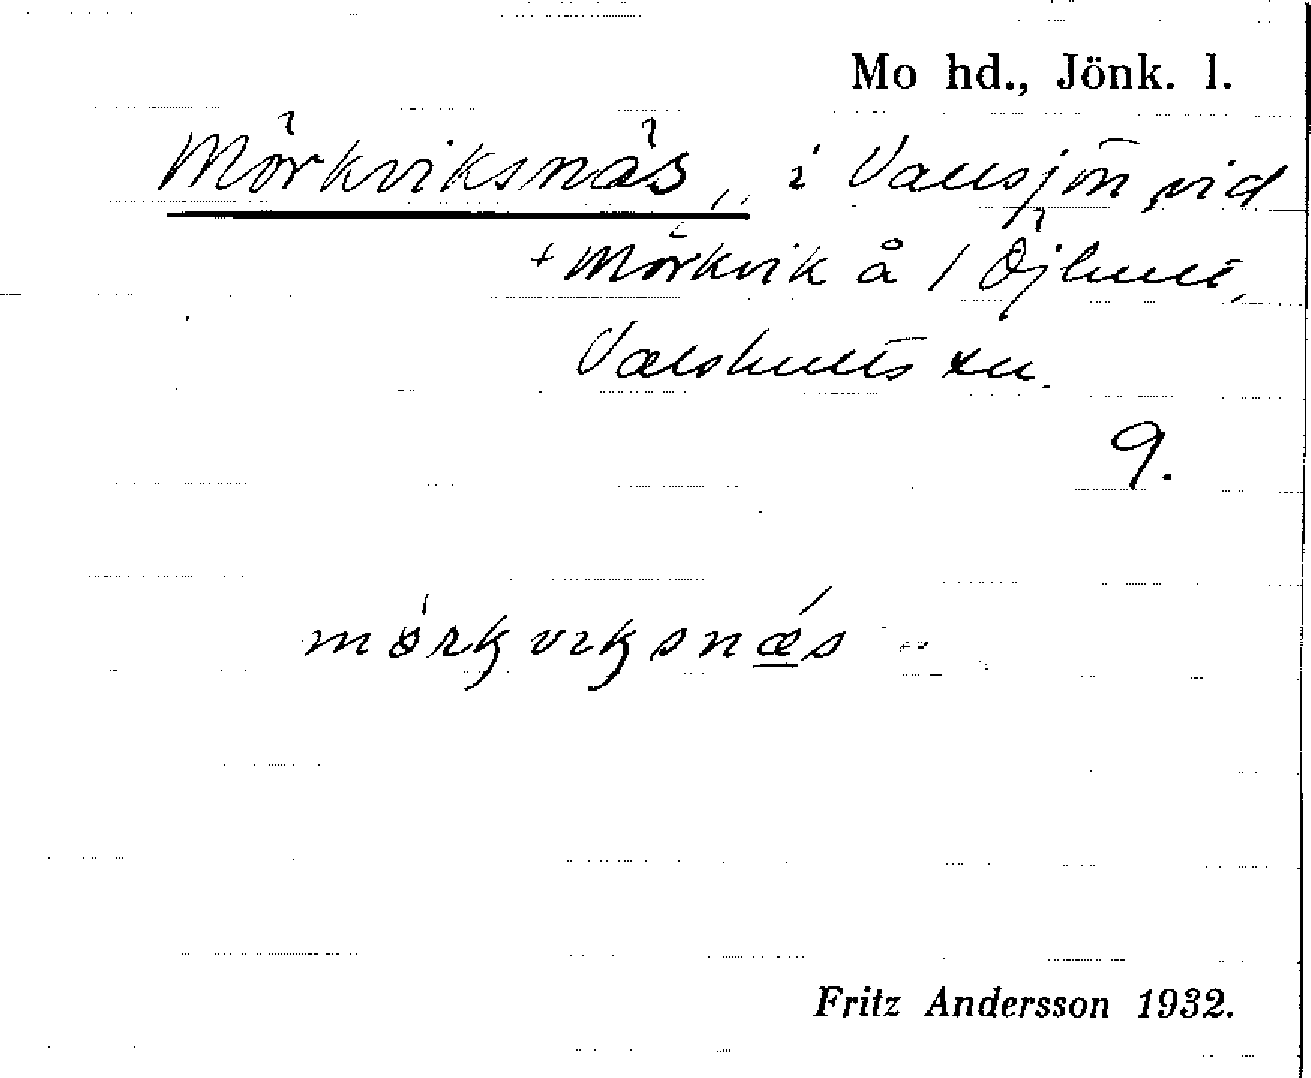 Mo hd., Jönk. l.
Mörkviksnäs, i Vallsjön vid
+ Mörkvik å / Öjhult,
Valshults sn.
9.
mörkviksnæs
Fritz Andersson 1932.